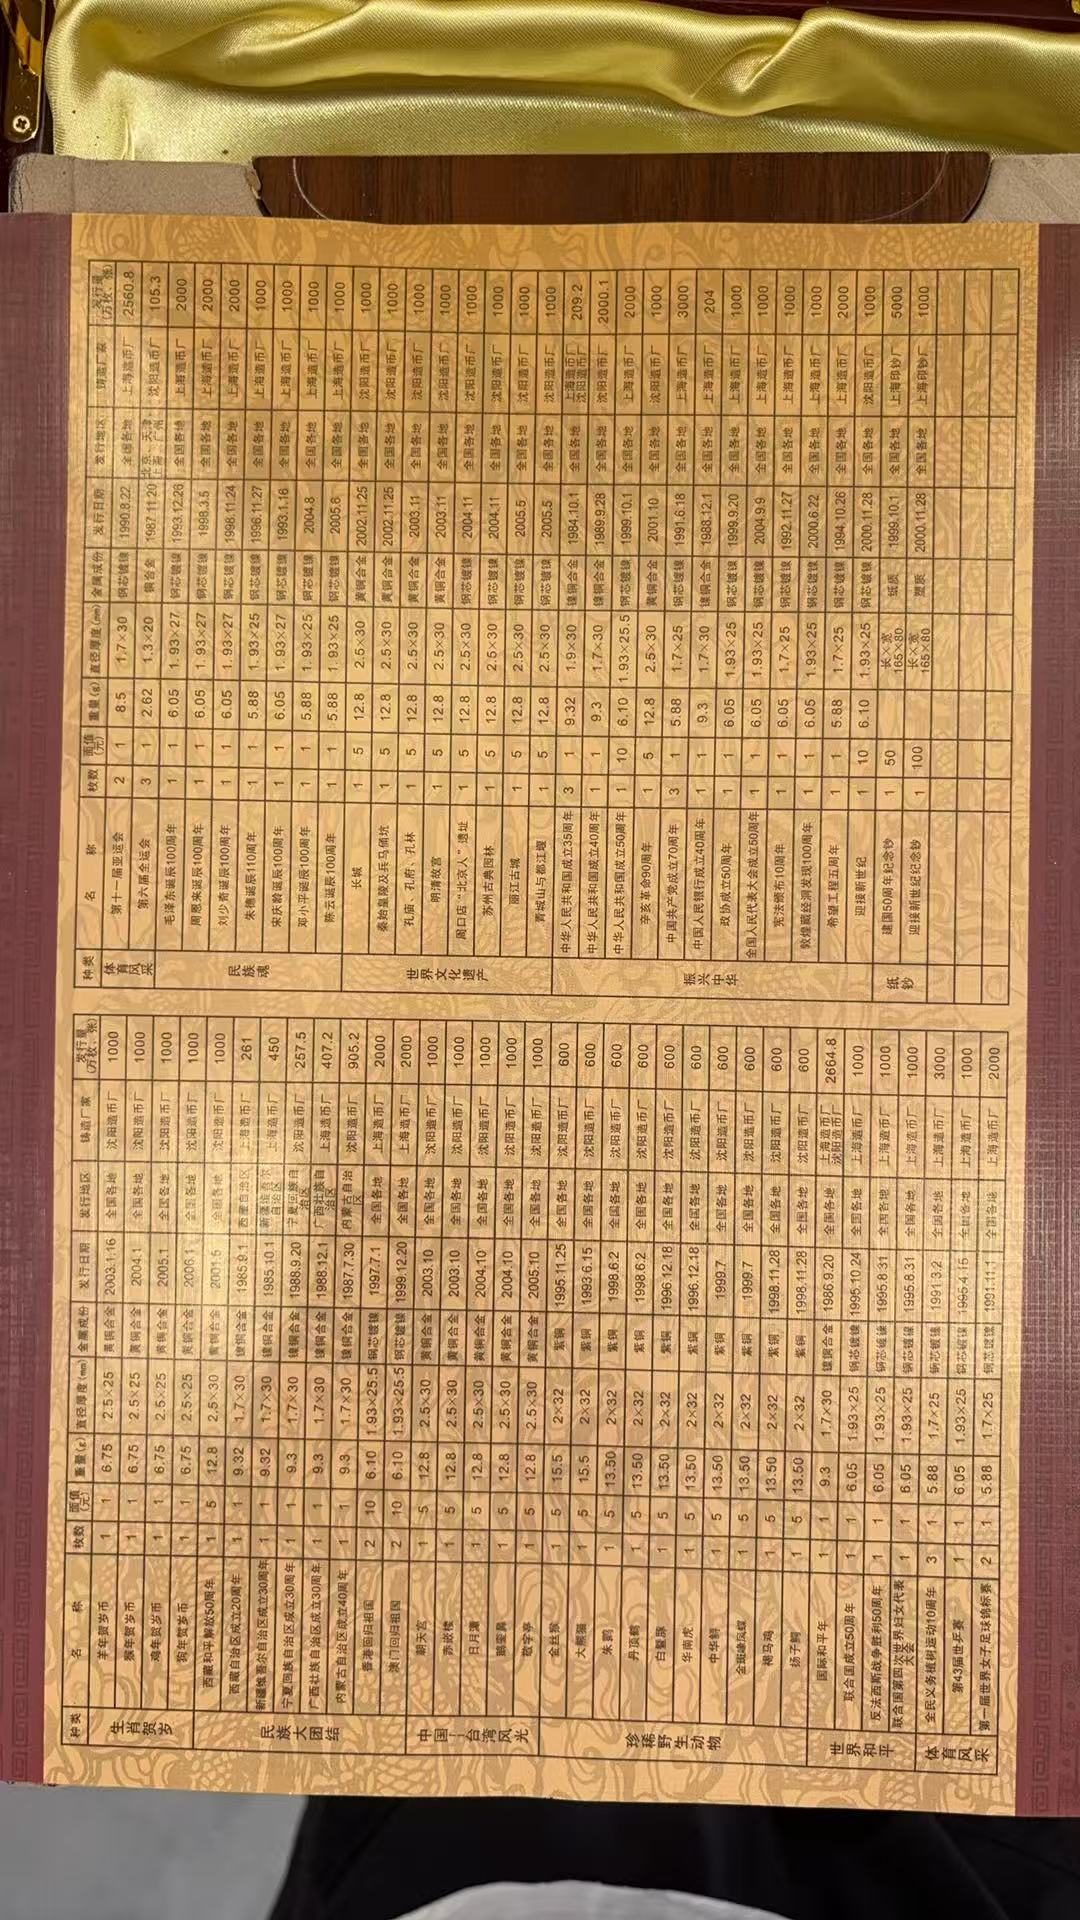 种类 名 称 枚数 面值(元) 重量(g) 直径厚度(mm) 金属成份 发行日期 发行地区 铸造厂家 发行量(万枚、张)
生肖贺岁
羊年贺岁币 1 1 6.75 2.5×25 黄铜合金 2003.1.16 全国各地 沈阳造币厂 1000
猴年贺岁币 1 1 6.75 2.5×25 黄铜合金 2004.1 全国各地 沈阳造币厂 1000
鸡年贺岁币 1 1 6.75 2.5×25 黄铜合金 2005.1 全国各地 沈阳造币厂 1000
狗年贺岁币 1 1 6.75 2.5×25 黄铜合金 2006.1 全国各地 沈阳造币厂 1000
民族大团结
西藏和平解放50周年 1 5 12.8 2.5×30 黄铜合金 2001.5 全国各地 沈阳造币厂 1000
西藏自治区成立20周年 1 1 9.32 1.7×30 镍铜合金 1985.9.1 西藏自治区 上海造币厂 261
新疆维吾尔自治区成立30周年 1 1 9.32 1.7×30 镍铜合金 1985.10.1 新疆维吾尔自治区 上海造币厂 450
宁夏回族自治区成立30周年 1 1 9.3 1.7×30 镍铜合金 1988.9.20 宁夏回族自治区 沈阳造币厂 257.5
广西壮族自治区成立30周年 1 1 9.3 1.7×30 镍铜合金 1988.12.1 广西壮族自治区 上海造币厂 407.2
内蒙古自治区成立40周年 1 1 9.3 1.7×30 镍铜合金 1987.7.30 内蒙古自治区 沈阳造币厂 905.2
香港回归祖国 2 10 6.10 1.93×25.5 钢芯镀镍 1997.7.1 全国各地 上海造币厂 2000
澳门回归祖国 2 10 6.10 1.93×25.5 钢芯镀镍 1999.12.20 全国各地 上海造币厂 2000
中国—台湾风光
朝天宫 1 5 12.8 2.5×30 黄铜合金 2003.10 全国各地 沈阳造币厂 1000
赤嵌楼 1 5 12.8 2.5×30 黄铜合金 2003.10 全国各地 沈阳造币厂 1000
日月潭 1 5 12.8 2.5×30 黄铜合金 2004.10 全国各地 沈阳造币厂 1000
鹅銮鼻 1 5 12.8 2.5×30 黄铜合金 2004.10 全国各地 沈阳造币厂 1000
敬字亭 1 5 12.8 2.5×30 黄铜合金 2005.10 全国各地 沈阳造币厂 1000
珍稀野生动物
金丝猴 1 5 15.5 2×32 紫铜 1995.11.25 全国各地 沈阳造币厂 600
大熊猫 1 5 15.5 2×32 紫铜 1993.6.15 全国各地 沈阳造币厂 600
朱鹮 1 5 13.50 2×32 紫铜 1998.6.2 全国各地 沈阳造币厂 600
丹顶鹤 1 5 13.50 2×32 紫铜 1998.6.2 全国各地 沈阳造币厂 600
白鳘豚 1 5 13.50 2×32 紫铜 1996.12.18 全国各地 沈阳造币厂 600
华南虎 1 5 13.50 2×32 紫铜 1996.12.18 全国各地 沈阳造币厂 600
中华鲟 1 5 13.50 2×32 紫铜 1999.7 全国各地 沈阳造币厂 600
金斑喙凤蝶 1 5 13.50 2×32 紫铜 1999.7 全国各地 沈阳造币厂 600
褐马鸡 1 5 13.50 2×32 紫铜 1998.11.28 全国各地 沈阳造币厂 600
扬子鳄 1 5 13.50 2×32 紫铜 1998.11.28 全国各地 沈阳造币厂 600
世界和平
国际和平年 1 1 9.3 1.7×30 镍铜合金 1986.9.20 全国各地 上海造币厂 沈阳造币厂 2664.8
联合国成立50周年 1 1 6.05 1.93×25 钢芯镀镍 1995.10.24 全国各地 上海造币厂 1000
反法西斯战争胜利50周年 1 1 6.05 1.93×25 钢芯镀镍 1995.8.31 全国各地 上海造币厂 1000
联合国第四次世界妇女代表大会 1 1 6.05 1.93×25 钢芯镀镍 1995.8.31 全国各地 上海造币厂 1000
体育风采
全民义务植树运动10周年 3 1 5.88 1.7×25 钢芯镀镍 1991.3.2 全国各地 上海造币厂 3000
第43届世乒赛 1 1 6.05 1.93×25 钢芯镀镍 1995.4.15 全国各地 上海造币厂 1000
第一届世界女子足球锦标赛 2 1 5.88 1.7×25 钢芯镀镍 1991.11.1 全国各地 上海造币厂 2000
种类 名 称 枚数 面值(元) 重量(g) 直径厚度(mm) 金属成份 发行日期 发行地区 铸造厂家 发行量(万枚、张)
体育风采
第十一届亚运会 2 1 8.5 1.7×30 钢芯镀镍 1990.8.22 全国各地 上海造币厂 2560.8
第六届全运会 3 1 2.62 1.3×20 铜合金 1987.11.20 北京 天津 上海 广州 沈阳造币厂 105.3
民族魂
毛泽东诞辰100周年 1 1 6.05 1.93×27 钢芯镀镍 1993.12.26 全国各地 上海造币厂 2000
周恩来诞辰100周年 1 1 6.05 1.93×27 钢芯镀镍 1998.3.5 全国各地 上海造币厂 2000
刘少奇诞辰100周年 1 1 6.05 1.93×27 钢芯镀镍 1998.11.24 全国各地 上海造币厂 2000
朱德诞辰110周年 1 1 5.88 1.93×25 钢芯镀镍 1996.11.27 全国各地 上海造币厂 1000
宋庆龄诞辰100周年 1 1 6.05 1.93×27 钢芯镀镍 1993.1.16 全国各地 上海造币厂 1000
邓小平诞辰100周年 1 1 5.88 1.93×25 钢芯镀镍 2004.8 全国各地 上海造币厂 1000
陈云诞辰100周年 1 1 5.88 1.93×25 钢芯镀镍 2005.6 全国各地 上海造币厂 1000
世界文化遗产
长城 1 5 12.8 2.5×30 黄铜合金 2002.11.25 全国各地 沈阳造币厂 1000
秦始皇陵及兵马俑坑 1 5 12.8 2.5×30 黄铜合金 2002.11.25 全国各地 沈阳造币厂 1000
孔庙、孔府、孔林 1 5 12.8 2.5×30 黄铜合金 2003.11 全国各地 沈阳造币厂 1000
明清故宫 1 5 12.8 2.5×30 黄铜合金 2003.11 全国各地 沈阳造币厂 1000
周口店“北京人”遗址 1 5 12.8 2.5×30 钢芯镀镍 2004.11 全国各地 沈阳造币厂 1000
苏州古典园林 1 5 12.8 2.5×30 钢芯镀镍 2004.11 全国各地 沈阳造币厂 1000
丽江古城 1 5 12.8 2.5×30 钢芯镀镍 2005.5 全国各地 沈阳造币厂 1000
青城山与都江堰 1 5 12.8 2.5×30 钢芯镀镍 2005.5 全国各地 沈阳造币厂 1000
振兴中华
中华人民共和国成立35周年 3 1 9.32 1.9×30 镍铜合金 1984.10.1 全国各地 上海造币厂 沈阳造币厂 209.2
中华人民共和国成立40周年 1 1 9.3 1.7×30 镍铜合金 1989.9.28 全国各地 沈阳造币厂 2000.1
中华人民共和国成立50周年 1 10 6.10 1.93×25.5 钢芯镀镍 1999.10.1 全国各地 上海造币厂 2000
辛亥革命90周年 1 5 12.8 2.5×30 黄铜合金 2001.10 全国各地 沈阳造币厂 1000
中国共产党成立70周年 3 1 5.88 1.7×25 钢芯镀镍 1991.6.18 全国各地 上海造币厂 3000
中国人民银行成立40周年 1 1 9.3 1.7×30 镍铜合金 1988.12.1 全国各地 上海造币厂 204
政协成立50周年 1 1 6.05 1.93×25 钢芯镀镍 1999.9.20 全国各地 上海造币厂 1000
全国人民代表大会成立50周年 1 1 6.05 1.93×25 钢芯镀镍 2004.9.9 全国各地 上海造币厂 1000
宪法颁布10周年 1 1 6.05 1.7×25 钢芯镀镍 1992.11.27 全国各地 上海造币厂 1000
敦煌藏经洞发现100周年 1 1 6.05 1.93×25 钢芯镀镍 2000.6.22 全国各地 上海造币厂 1000
希望工程五周年 1 1 5.88 1.7×25 钢芯镀镍 1994.10.26 全国各地 上海造币厂 2000
迎接新世纪 1 10 6.10 1.93×25 钢芯镀镍 2000.11.28 全国各地 沈阳造币厂 1000
纸钞
建国50周年纪念钞 1 50 长×宽 165×80 纸质 1999.10.1 全国各地 上海印钞厂 5000
迎接新世纪纪念钞 1 100 长×宽 165×80 塑质 2000.11.28 全国各地 上海印钞厂 1000